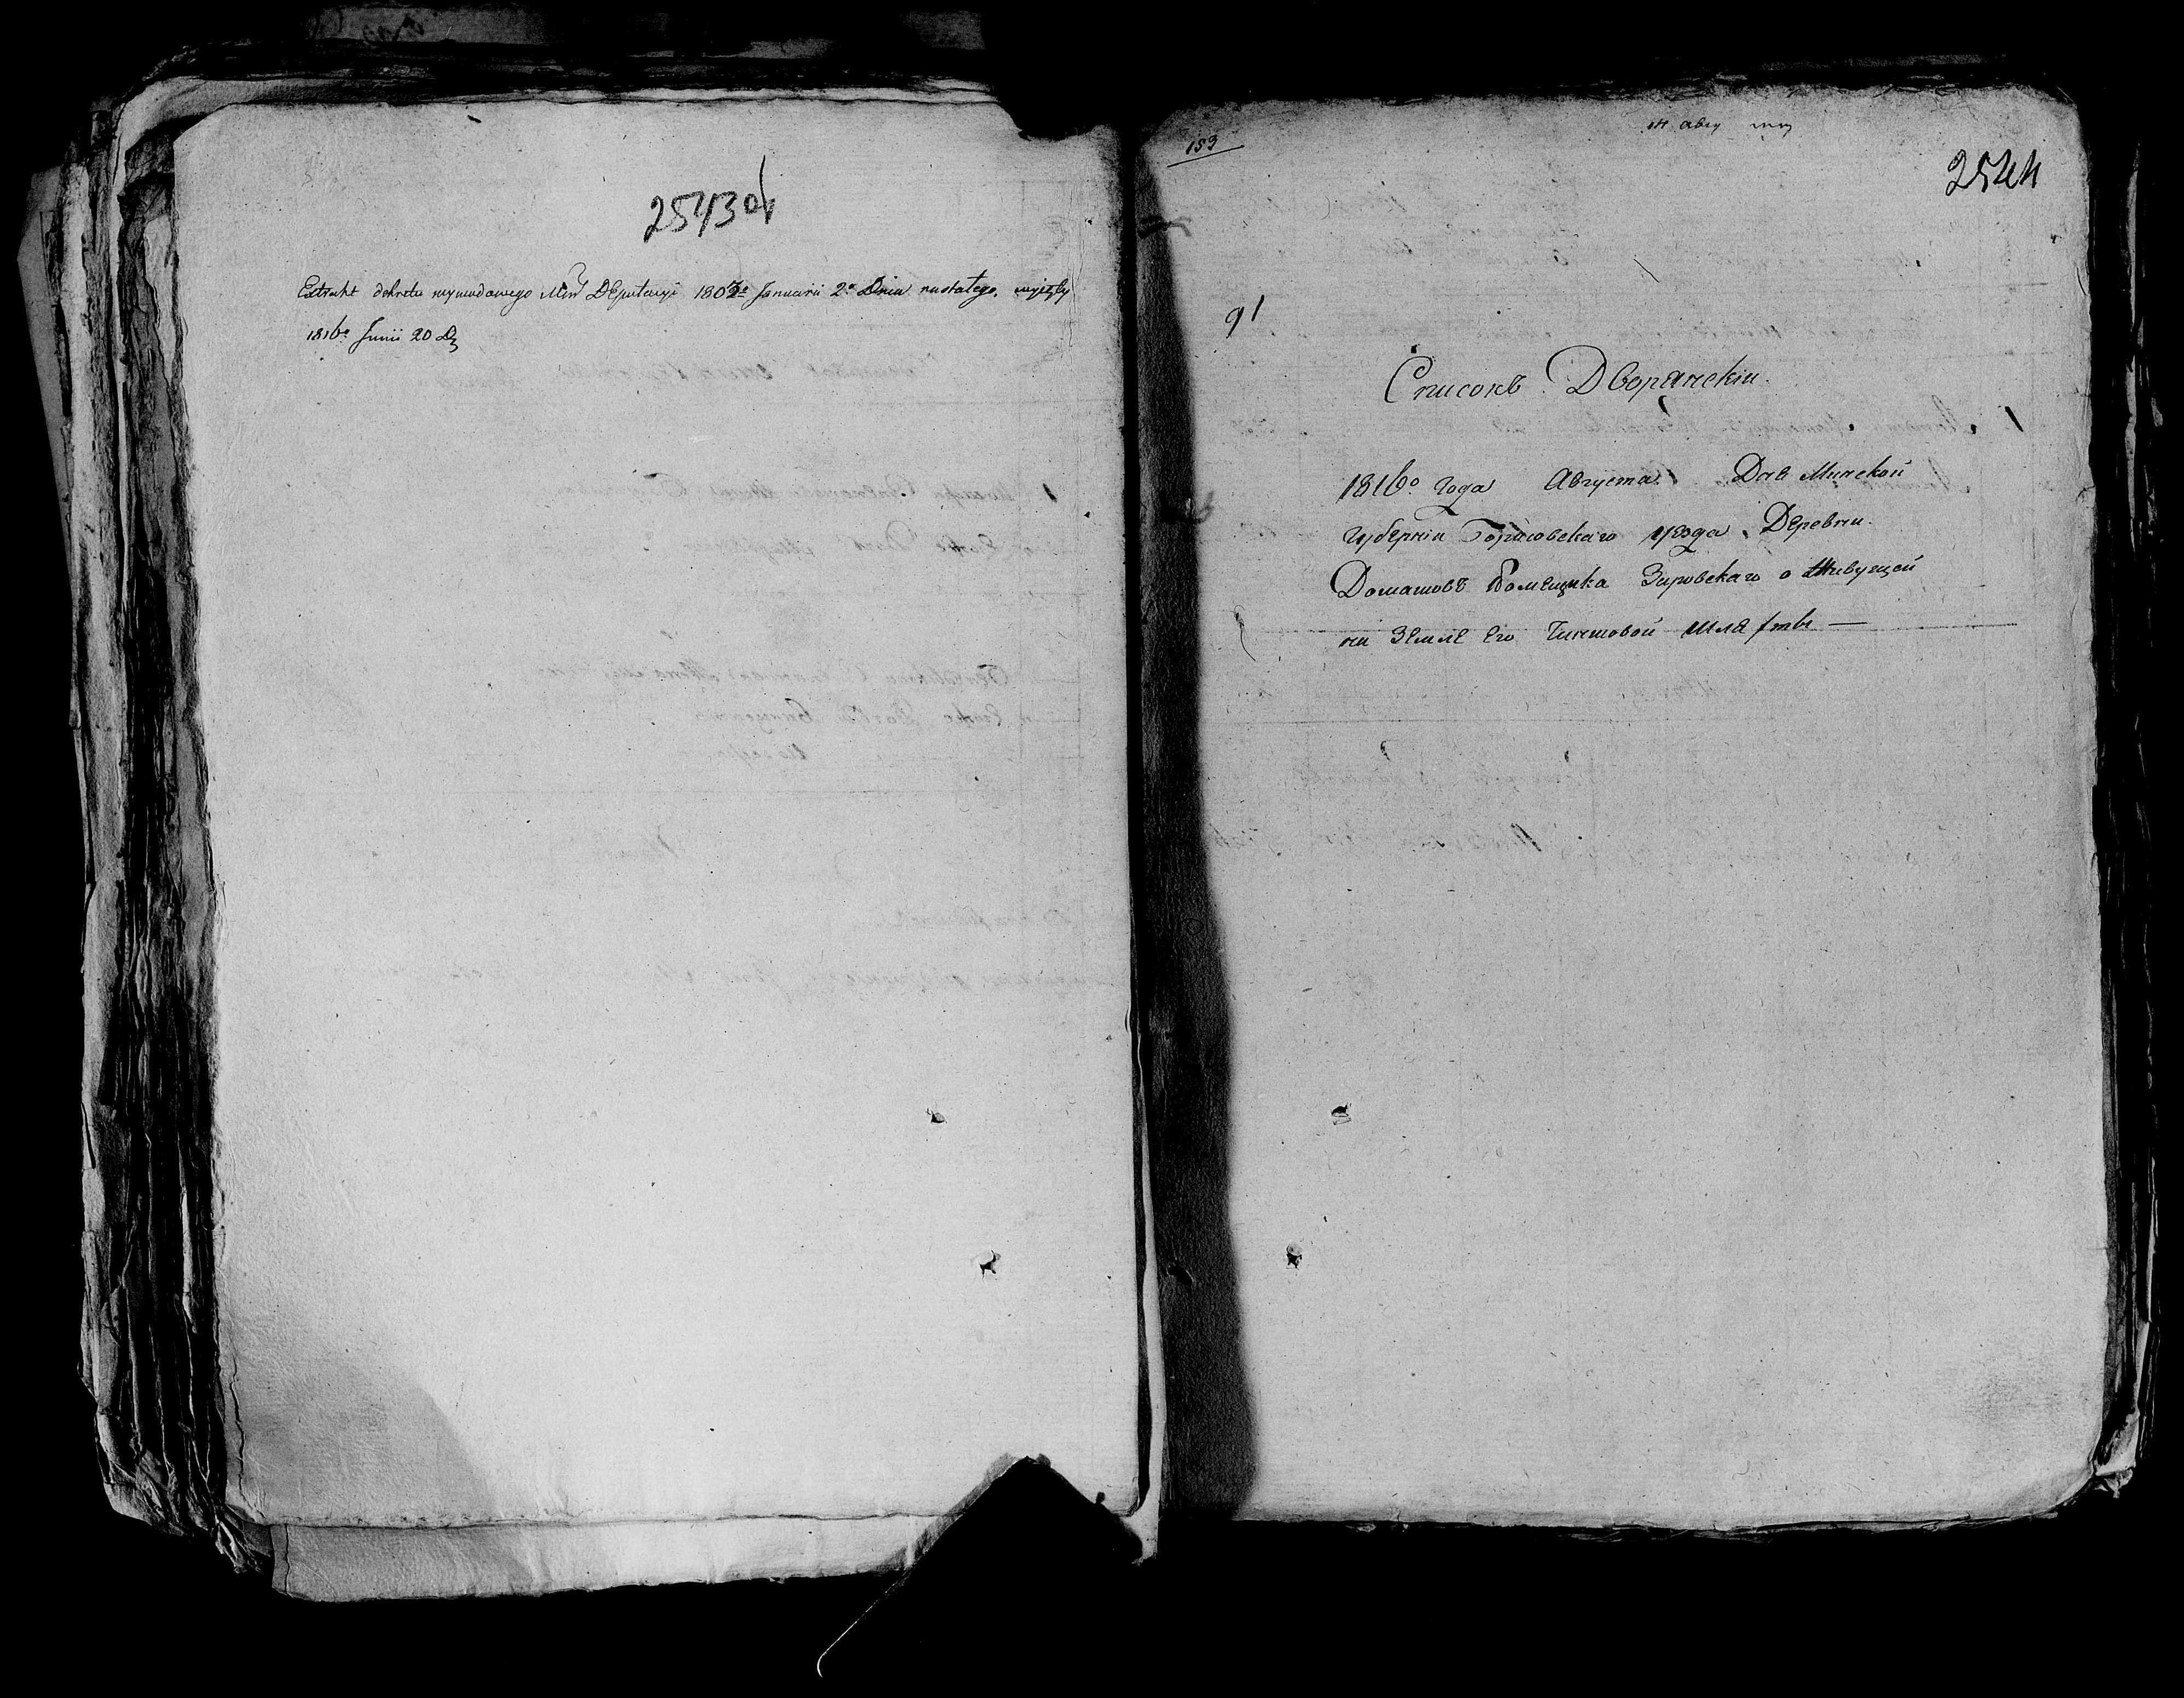 2543об
Extrakt dekretu wywodowego Min Deputacyi 1802º Januarii 2º Dnia nastałego, wyięty
1816º Junii 20 D
183
2544
91
Списокъ Дворянскіи.
1816º. года Августа Дня Минской
Губерніи Борисовскаго уезда Деревни.
Домашовъ Помещика Зировскаго о Живущей
на Земле Его Чиншовой Шляхты —